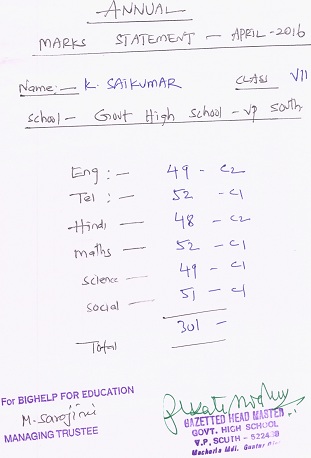 ANNUAL
MARKS STATEMENT - APRIL-2016
Name:- K. SAIKUMAR CLASS VII
School - Govt High School - VP South
Eng :- 49 - C2
Tel :- 52 - C1
Hindi - 48 - C2
maths - 52 - C1
science - 49 - C1
social - 51 - C1
Total 301 -
For BIGHELP FOR EDUCATION
M. Sarojini
MANAGING TRUSTEE
GAZETTED HEAD MASTER
GOVT. HIGH SCHOOL
V.P. SOUTH - 522438
Macherla Mdl. Guntur